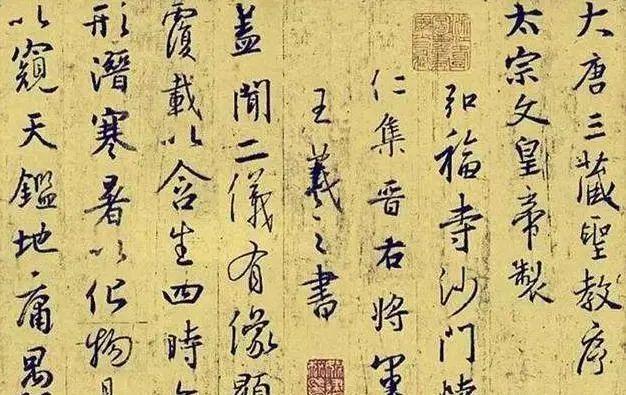 大唐三藏聖教序
太宗文皇帝製
弘福寺沙門懷
仁集晉右將軍
王羲之書
蓋聞二儀有像顯
覆載以含生四時
形潛寒暑以化物
以窺天鑑地庸愚